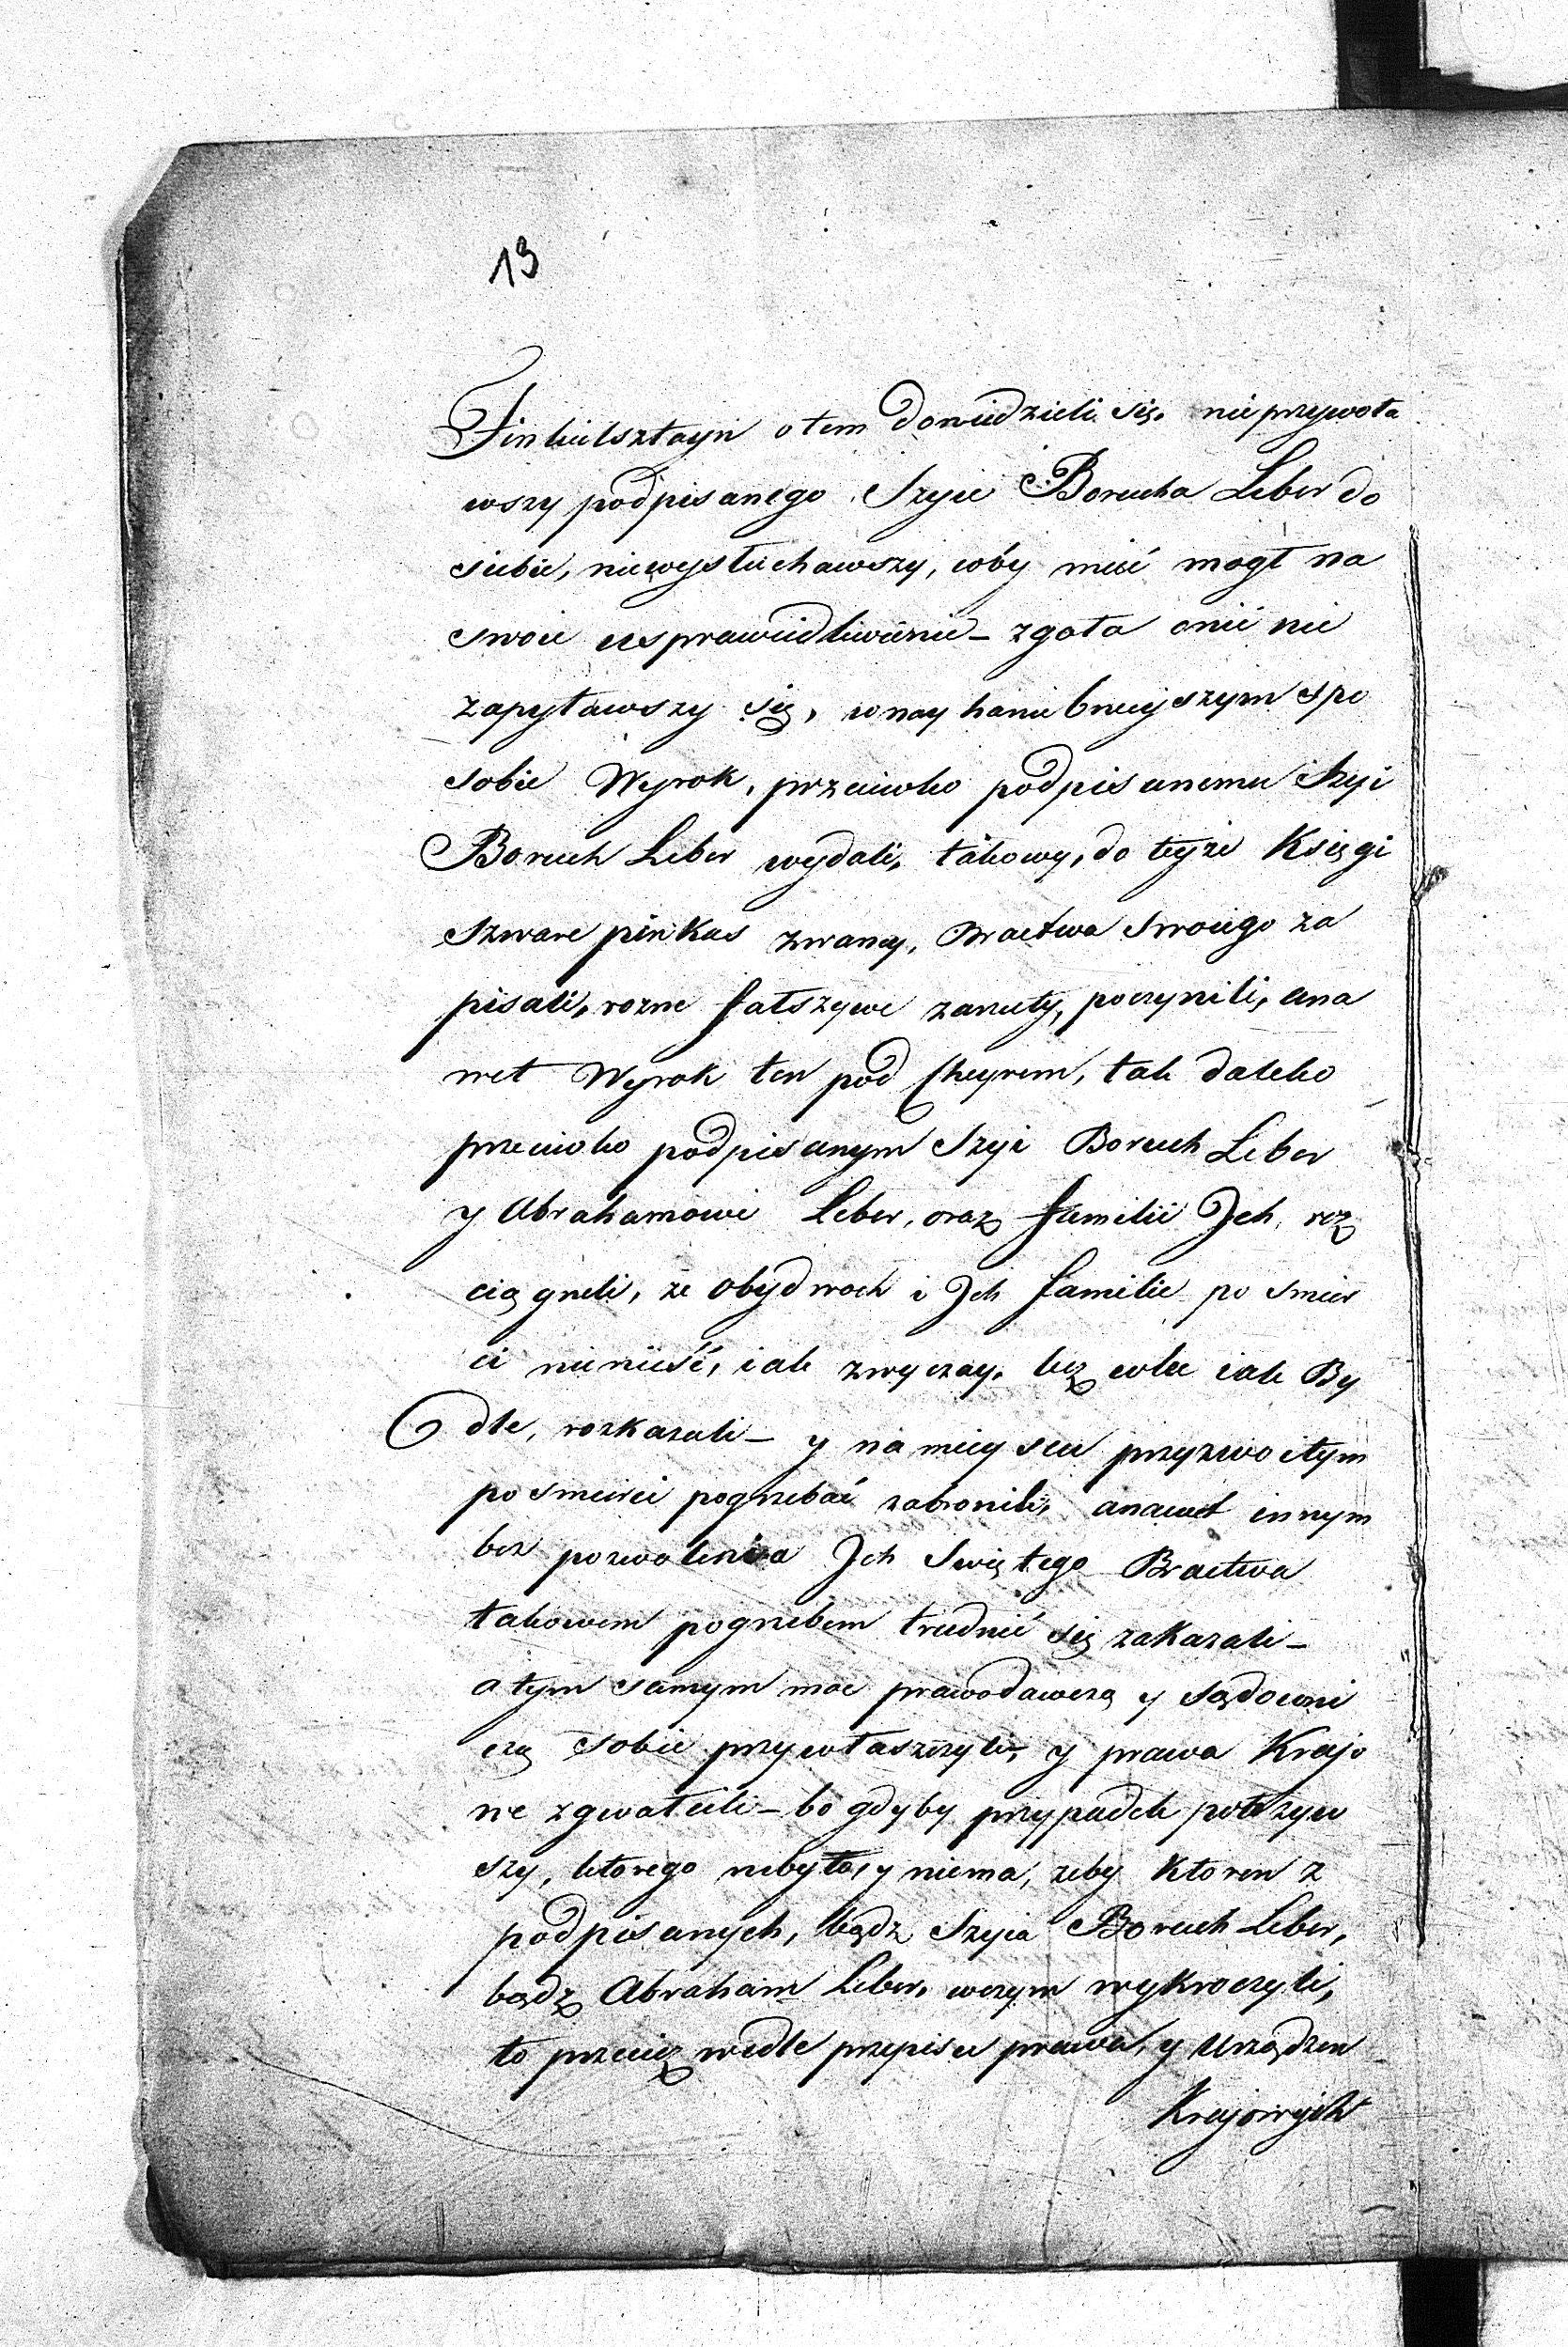 13
Finkielsztayn o tem dowiedzieli się, nie przywoła
wszy podpisanego Szyie Borucha Leber do
siebie, niewysłuchawszy, coby mieć mogł na
swoie usprawiedliwienie – zgoła onić nie
zapytawszy się, w nay haniebneyszym spo
sobie Wyrok, przeciwko podpisanemu Szyi
Boruch Leber wydali, takowy, do teyże Księgi
Szwarc pinkas zwaney, Bractwa swoiego za
pisali, rozne fałszywe zarzuty, poczynili, ana
wet Wyrok ten pod Cheyrem, tak daleko
przeciwko podpisanym Szyi Boruch Leber
y Abrahamowi Leber, oraz familii Ich, roz
ciągneli, że obydwoch i Ich familie po smier
ci nienieść, iak zwyczay, lecz wlec iak By
dle, rozkazali – y na mieyscu przyzwoitym
po smierci pogrzebać zabronili, anawet innym
bez pozwolenia Ich Swiętego Bractwa
takowem pogrzebem trudnić się zakazali –
a tym samym moc prawodawczą y sądowni
czą sobie przywłaszczyli, y prawa Krajo
we zgwałcili – bo gdyby przypadek położyw
szy, ktorego niebyło, y niema, żeby Ktoren z
podpisanych, bądz Szyia Boruch Leber,
bądz Abraham Leber, wczym wykroczyli,
to przeciez wedle przepisu prawa, y Urządzen
Krajowych